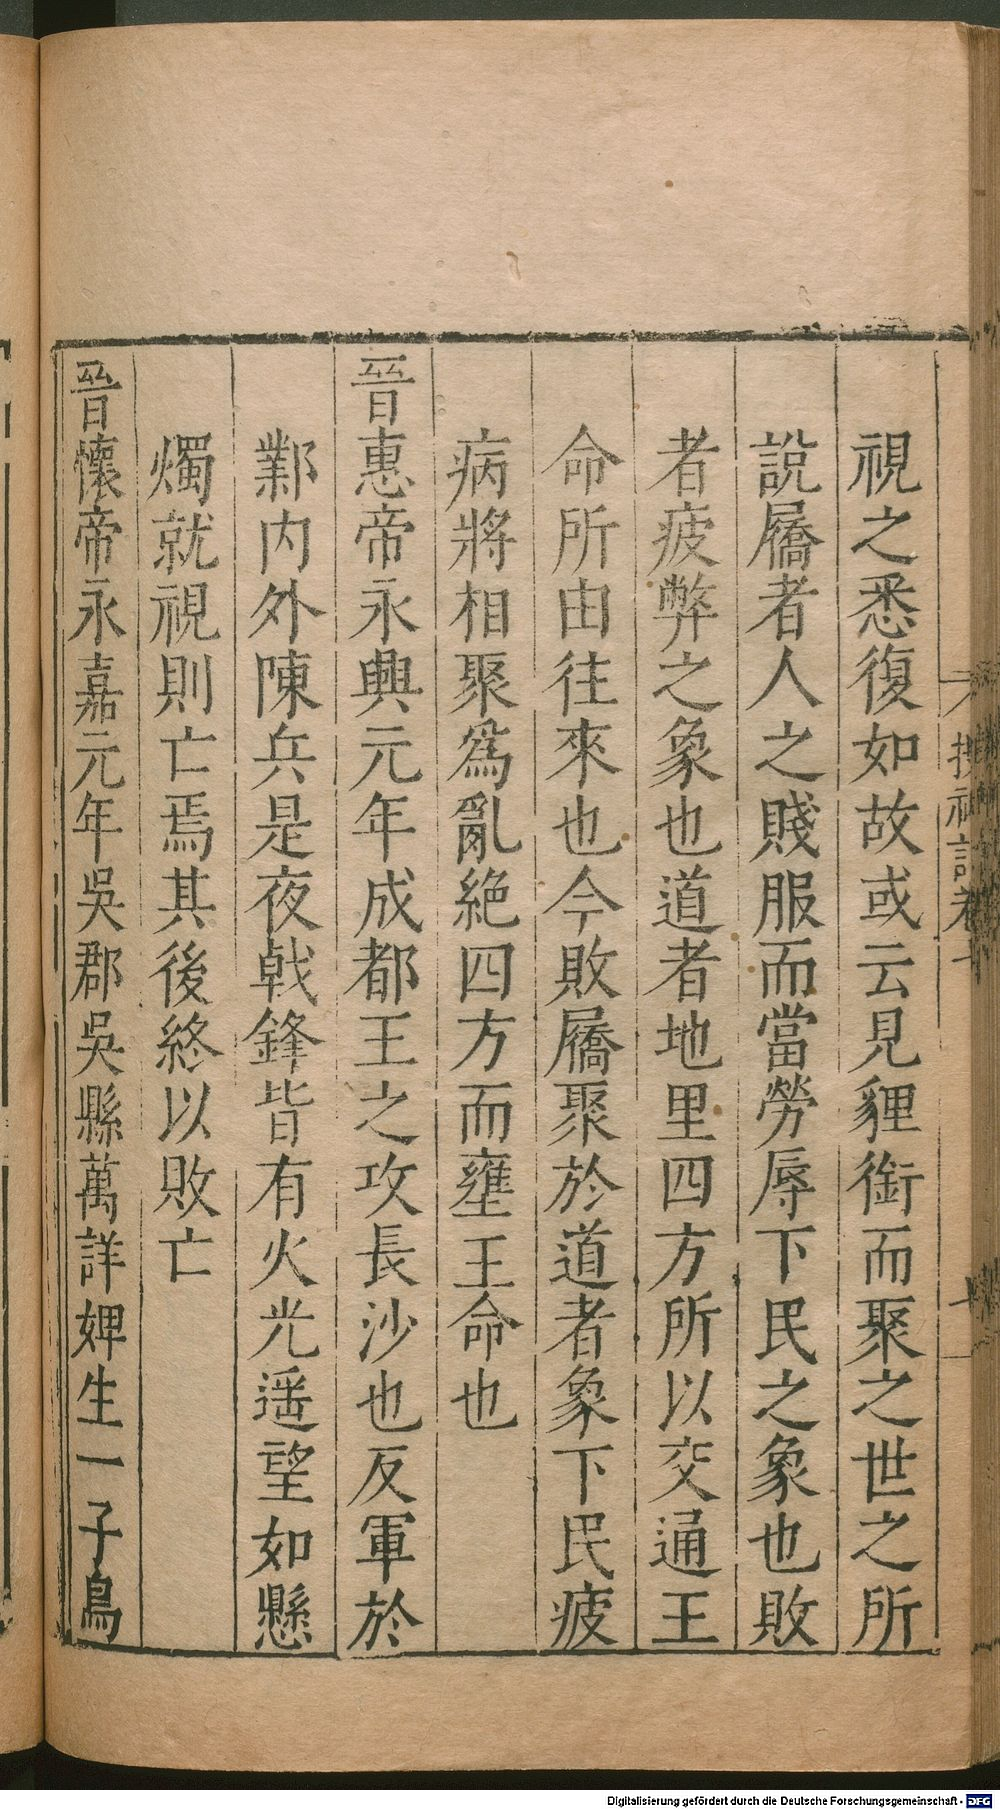 視之悉復如故或云見貍銜而聚之世之所
說屩者人之賤服而當勞辱下民之象也敗
者疲弊之象也道者地里四方所以交通王
命所由往來也今敗屩聚於道者象下民疲
病將相聚爲亂絶四方而壅王命也
晉惠帝永興元年成都王之攻長沙也反軍於
鄴內外陳兵是夜戟鋒皆有火光遥望如懸
燭就視則亡焉其後終以敗亡
晉懷帝永嘉元年吳郡吳縣萬詳婢生一子鳥
Digitalisierung gefördert durch die Deutsche Forschungsgemeinschaft - DFG